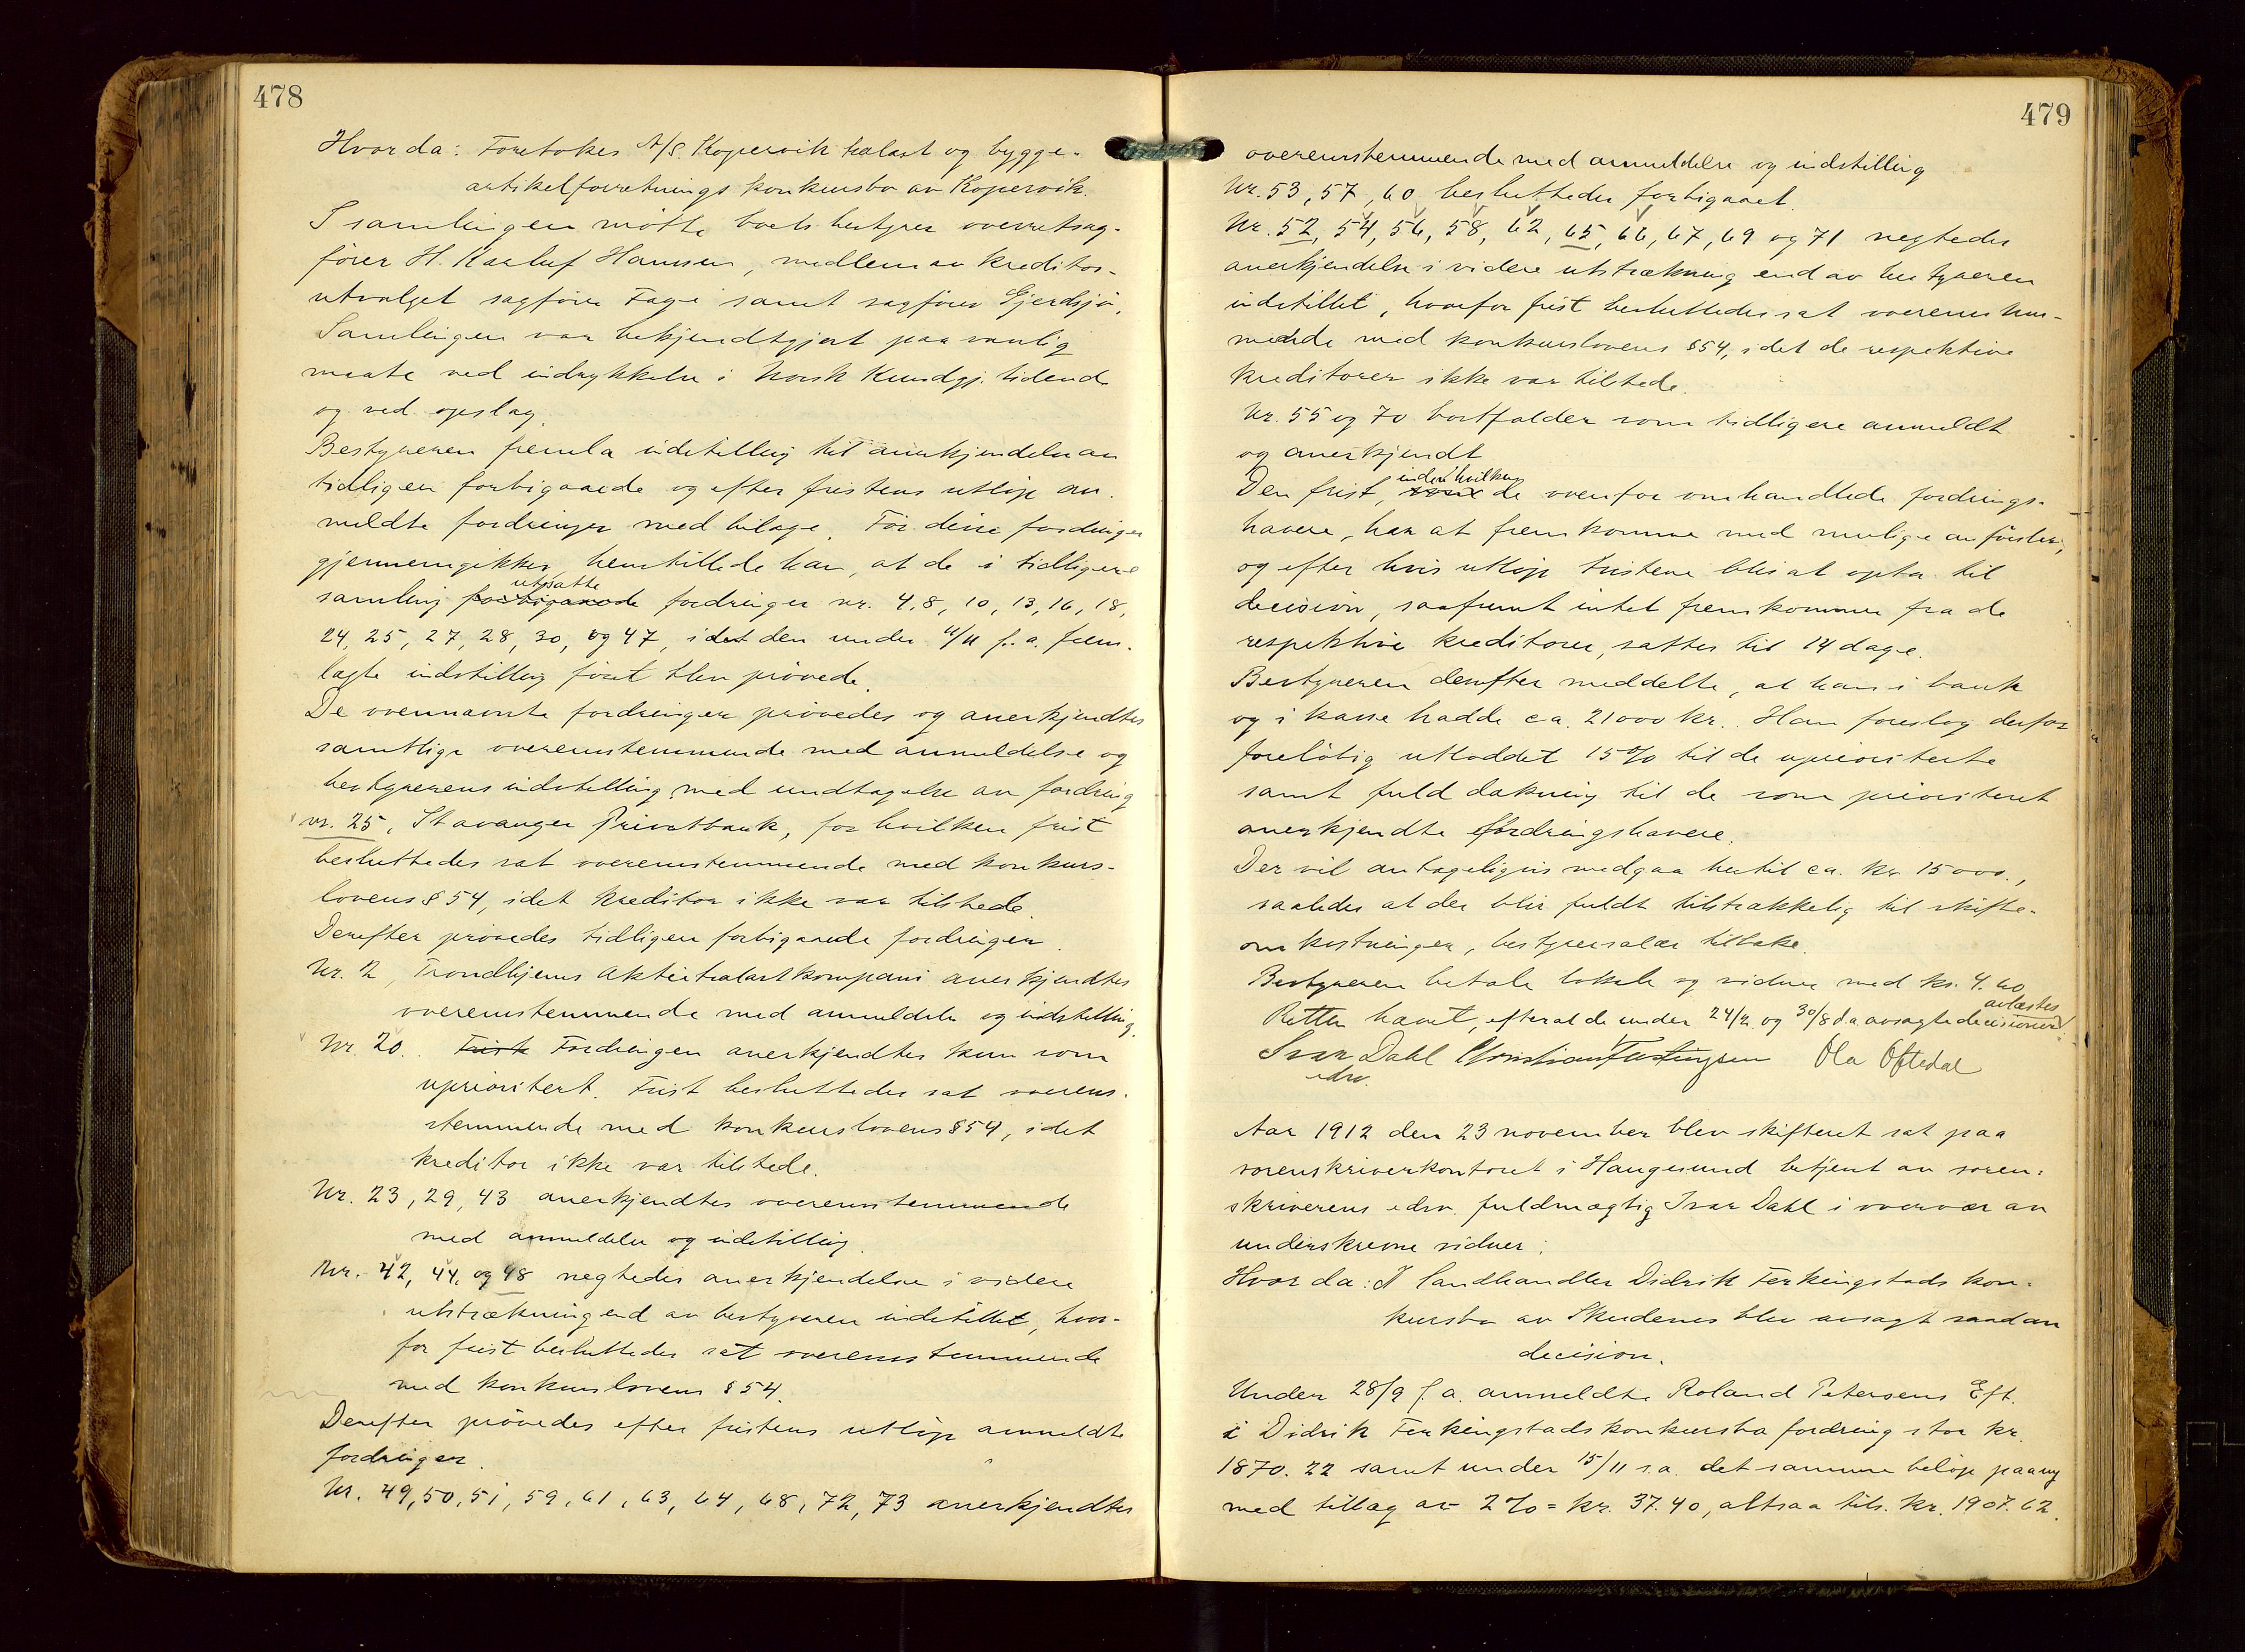 478
Hvorda: Foretokes A/S. Kopervik trælast og bygge-
artikelforretnings konkursbo av Kopervik.
I samlingen møtte boets bestyrer overretsag-
fører H. Kaaluf Hanssen, medlem av kreditor-
utvalget sagfører Fage samt sagfører Gjerdsjø.
Samlingen var bekjendtgjort paa vanlig
maate ved indrykkelse i Norsk Kundgj. tidende
og ved opslag.
Bestyreren fremla indstilling til anerkjendelse av
tidligere forbigaaede og efter fristens utløp an-
meldte fordringer med bilage. Før disse fordringer
gjennemgikkes henstillede han, at de i tidligere
samling forbigaaede utsatte fordringer nr. 4, 8, 10, 13, 16, 18,
24, 25, 27, 28, 30, og 47, idet den under 4/11 f. a. frem-
lagte indstilling først blev prøvede.
De ovennævnte fordringer prøvedes og anerkjendtes
samtlige overensstemmende med anmeldelse og
bestyrerens indstilling med undtagelse av fordring
nr. 25, Stavanger Privatbank, for hvilken frist
besluttedes sat overensstemmende med konkurs-
lovens § 54, idet kreditor ikke var tilstede.
Derefter prøvedes tidligere forbigaaede fordringer.
Nr. 2, Trondhjems Aktietrælastkompani anerkjendtes
overensstemmende med anmeldelse og indstilling.
Nr. 20. Frist Fordringen anerkjendtes kun som
uprioritert. Frist besluttedes sat overens-
stemmende med konkurslovens § 54, idet
kreditor ikke var tilstede.
Nr. 23, 29, 43 anerkjendtes overensstemmende
med anmeldelse og indstilling.
Nr. 42, 44, og 48 negtedes anerkjendelse i videre
utstrækning end av bestyreren indstillet, hvor-
for frist besluttedes sat overensstemmende
med konkurslovens § 54.
Derefter prøvedes efter fristens utløp anmeldte
fordringer.
Nr. 49, 50, 51, 59, 61, 63, 64, 68, 72, 73 anerkjendtes
479
overensstemmende med anmeldelse og indstilling
Nr. 53, 57, 60 besluttedes forbigaaet.
Nr. 52, 54, 56, 58, 62, 65, 66, 67, 69 og 71 negtedes
anerkjendelse i videre utstrækning end av bestyreren
indstillet, hvorfor frist besluttedes sat overensstem-
mende med konkurslovens § 54, idet de respektive
kreditorer ikke var tilstede.
Nr. 55 og 70 bortfalder som tidligere anmeldt
og anerkjendt
Den frist, inden hvilken de ovenfor omhandlede fordrings-
havere, har at fremkomme med mulige anførsler,
og efter hvis utløp tvistene blir at opta til
decision, saafremt intet fremkommer fra de
respektive kreditorer, sattes til 14 dage.
Bestyreren derefter meddelte, at han i bank
og i kasse hadde ca. 21000 kr. Han foreslog derfor
foreløbig utloddet 15% til de upriioriterte
samt fuld dækning til de som prioritert
anerkjendte fordringshavere.
Der vil antageligvis medgaa hertil ca. kr. 15000.,
saaledes at der blir fuldt tilstrækkelig til skifte-
omkostninger, bestyrersalær tilbake.
Bestyreren betale lokale og vidner med kr. 4.40
Retten hævet, efterat de under 24/2 og 30/8 d. a. avsagte decisioner avlæstes.
Ivar Dahl Christian Fastingsen Ola Oftedal
edsv.
Aar 1912 den 23 november blev skifteret sat paa
sorenskriverkontoret i Haugesund betjent av soren-
skriverens edsv. fuldmægtig Ivar Dahl i overvær av
underskrevne vidner:
Hvor da: I landhandler Didrik Ferkingstads kon-
kursbo av Skudenes blev avsagt saadan
decision.
Under 28/9 f. a. anmeldte Roland Petersens Eft.
i Didrik Ferkingstads konkursbo fordring stor kr.
1870. 22 samt under 15/11 s. a. det samme beløp paany
med tillæg av 2% = kr. 37.40, altsaa tils. kr. 1907.62.